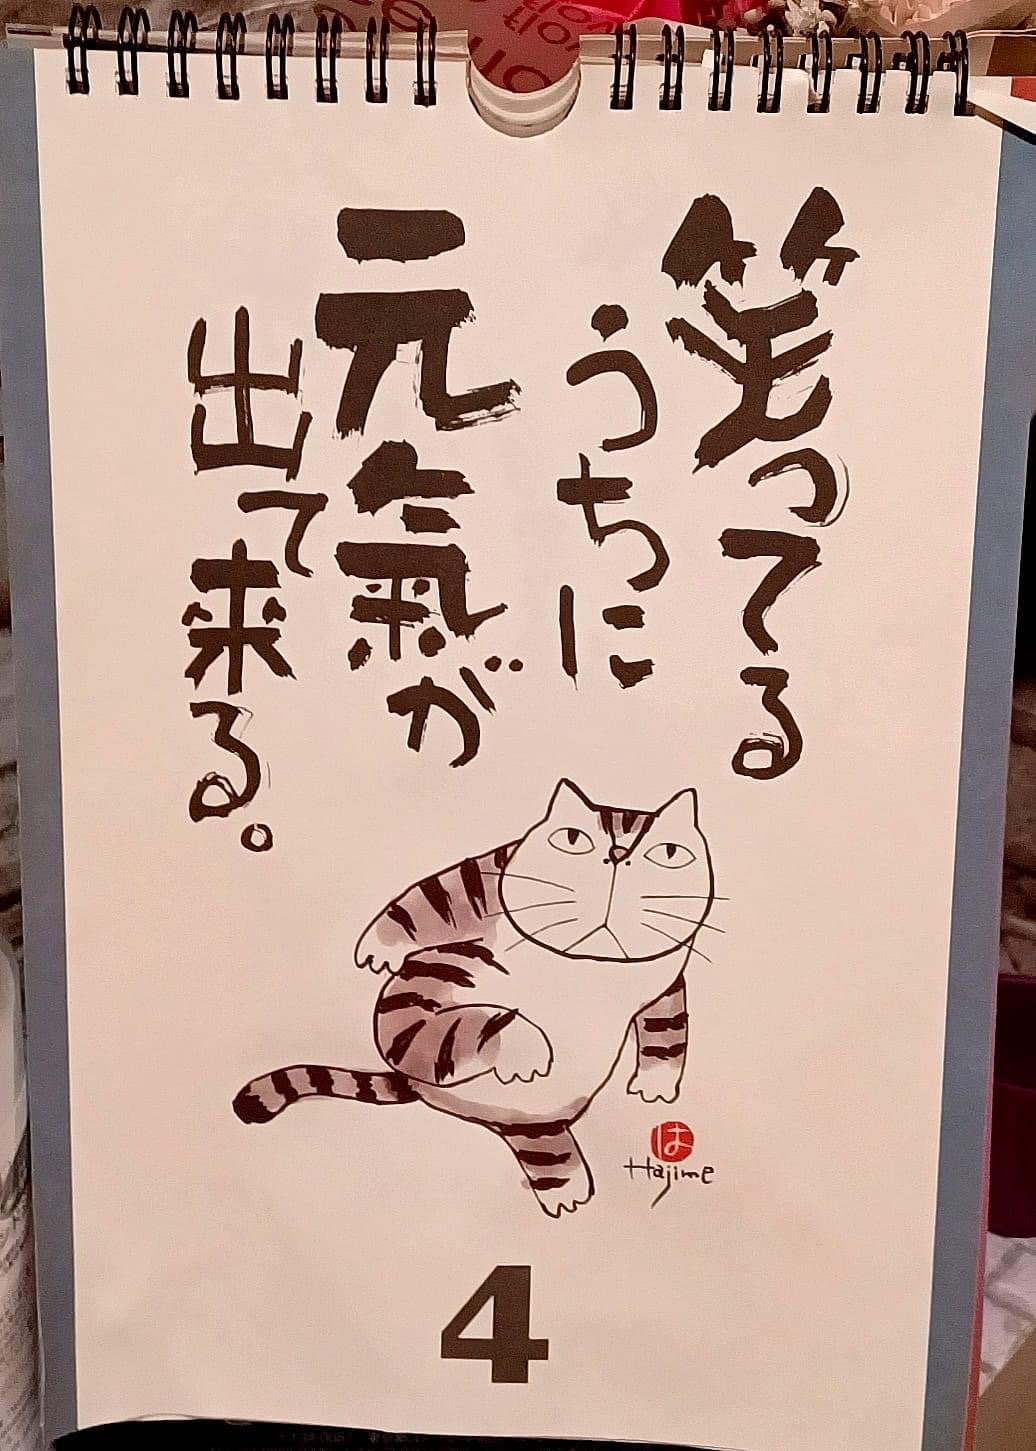 笑ってる
うちに
元氣が
出て来る。
は
Hajime
4